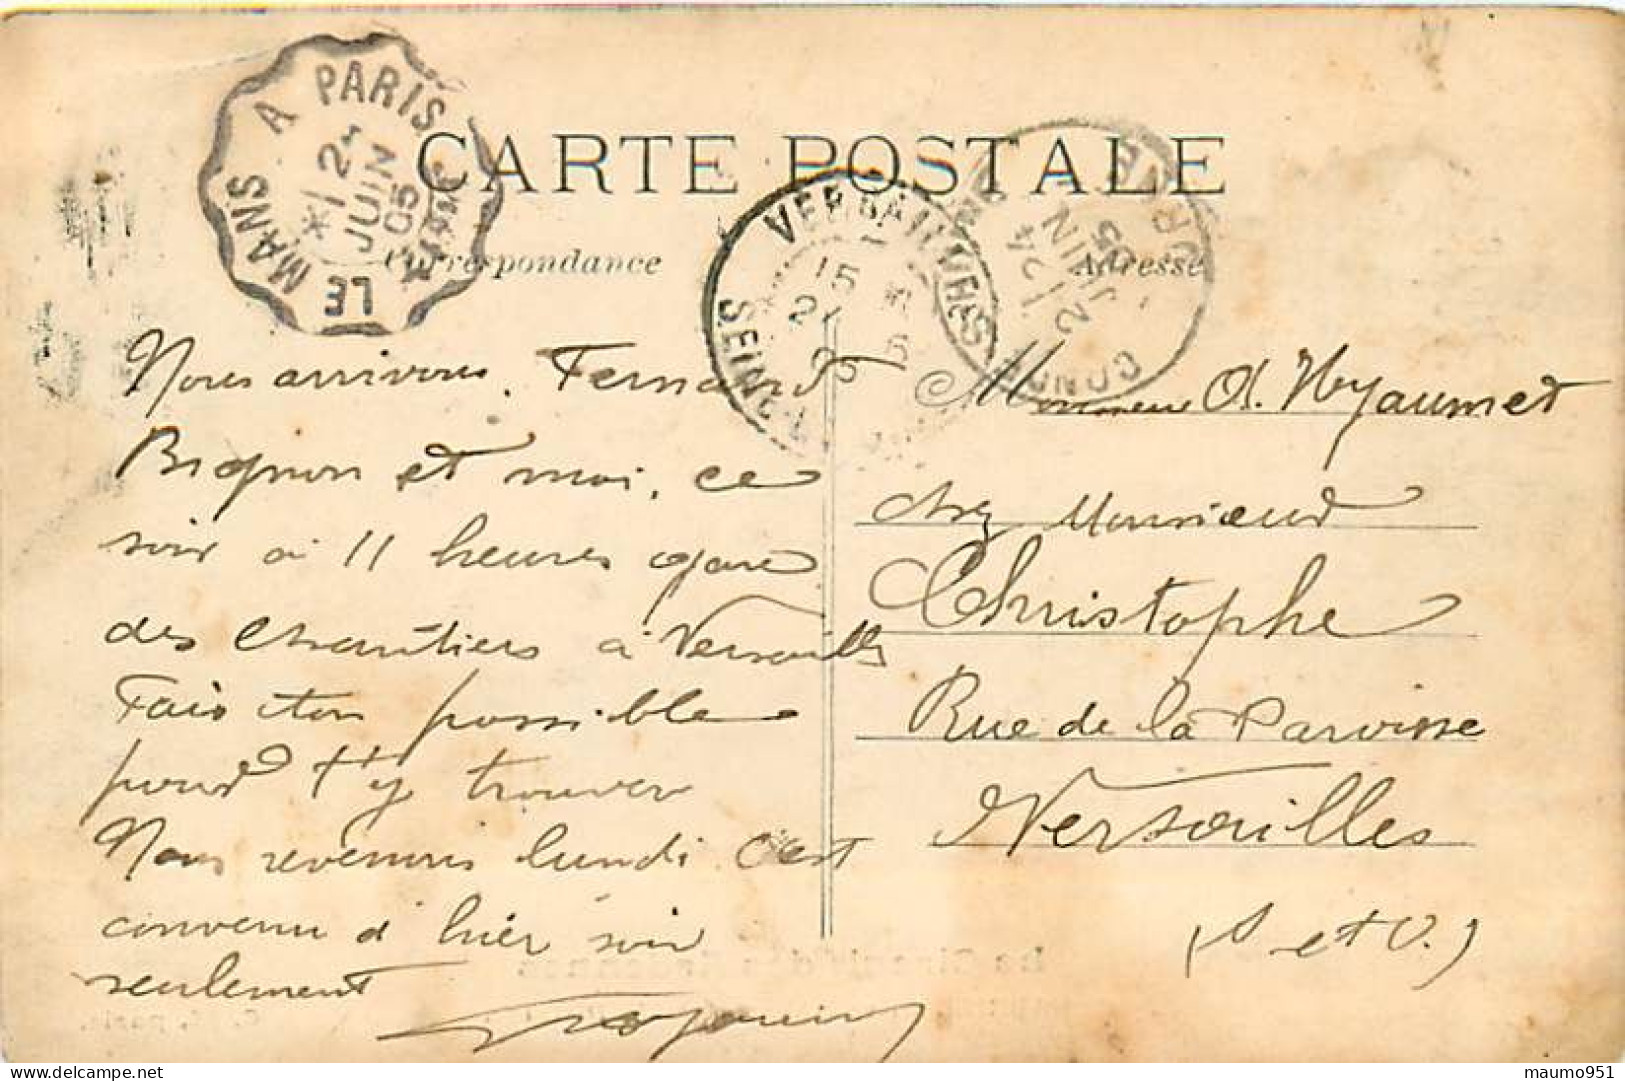 CARTE POSTALE
Correspondance
Adresse
LE MANS A PARIS
JUIN
05
VERSAILLES
SEINE
15
JUIN
05
Nous arrivons, Fernand
Bignon et moi, ce
soir à 11 heures gare
des Chantiers à Versailles
Fais ton possible
pour t'y trouver
Nous revenons lundi c'est
convenu d'hier soir
seulement
Monsieur
chez Monsieur
Christophe
Rue de la Paroisse
Versailles
(S et O.)
maumo951